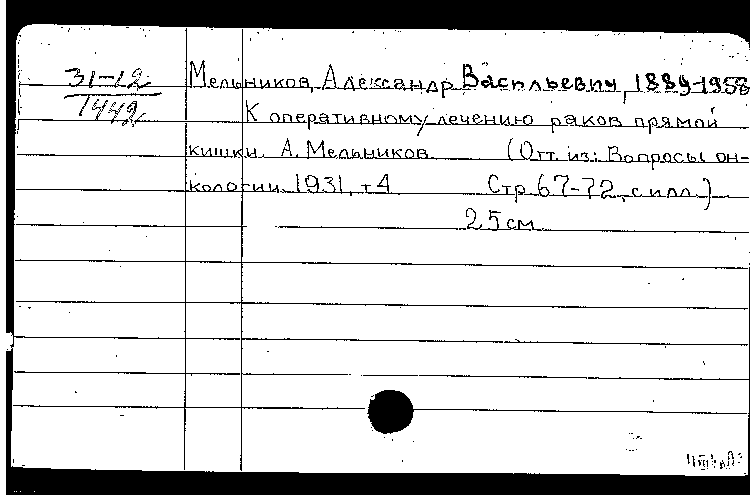 31-12
1442
Мельников, Александр Васильевич, 1889-1958
К оперативному лечению раков прямой
кишки. А. Мельников. (Отт. из: Вопросы он-
кологии. 1931, т 4 Стр. 67-72, с илл.)
25 см